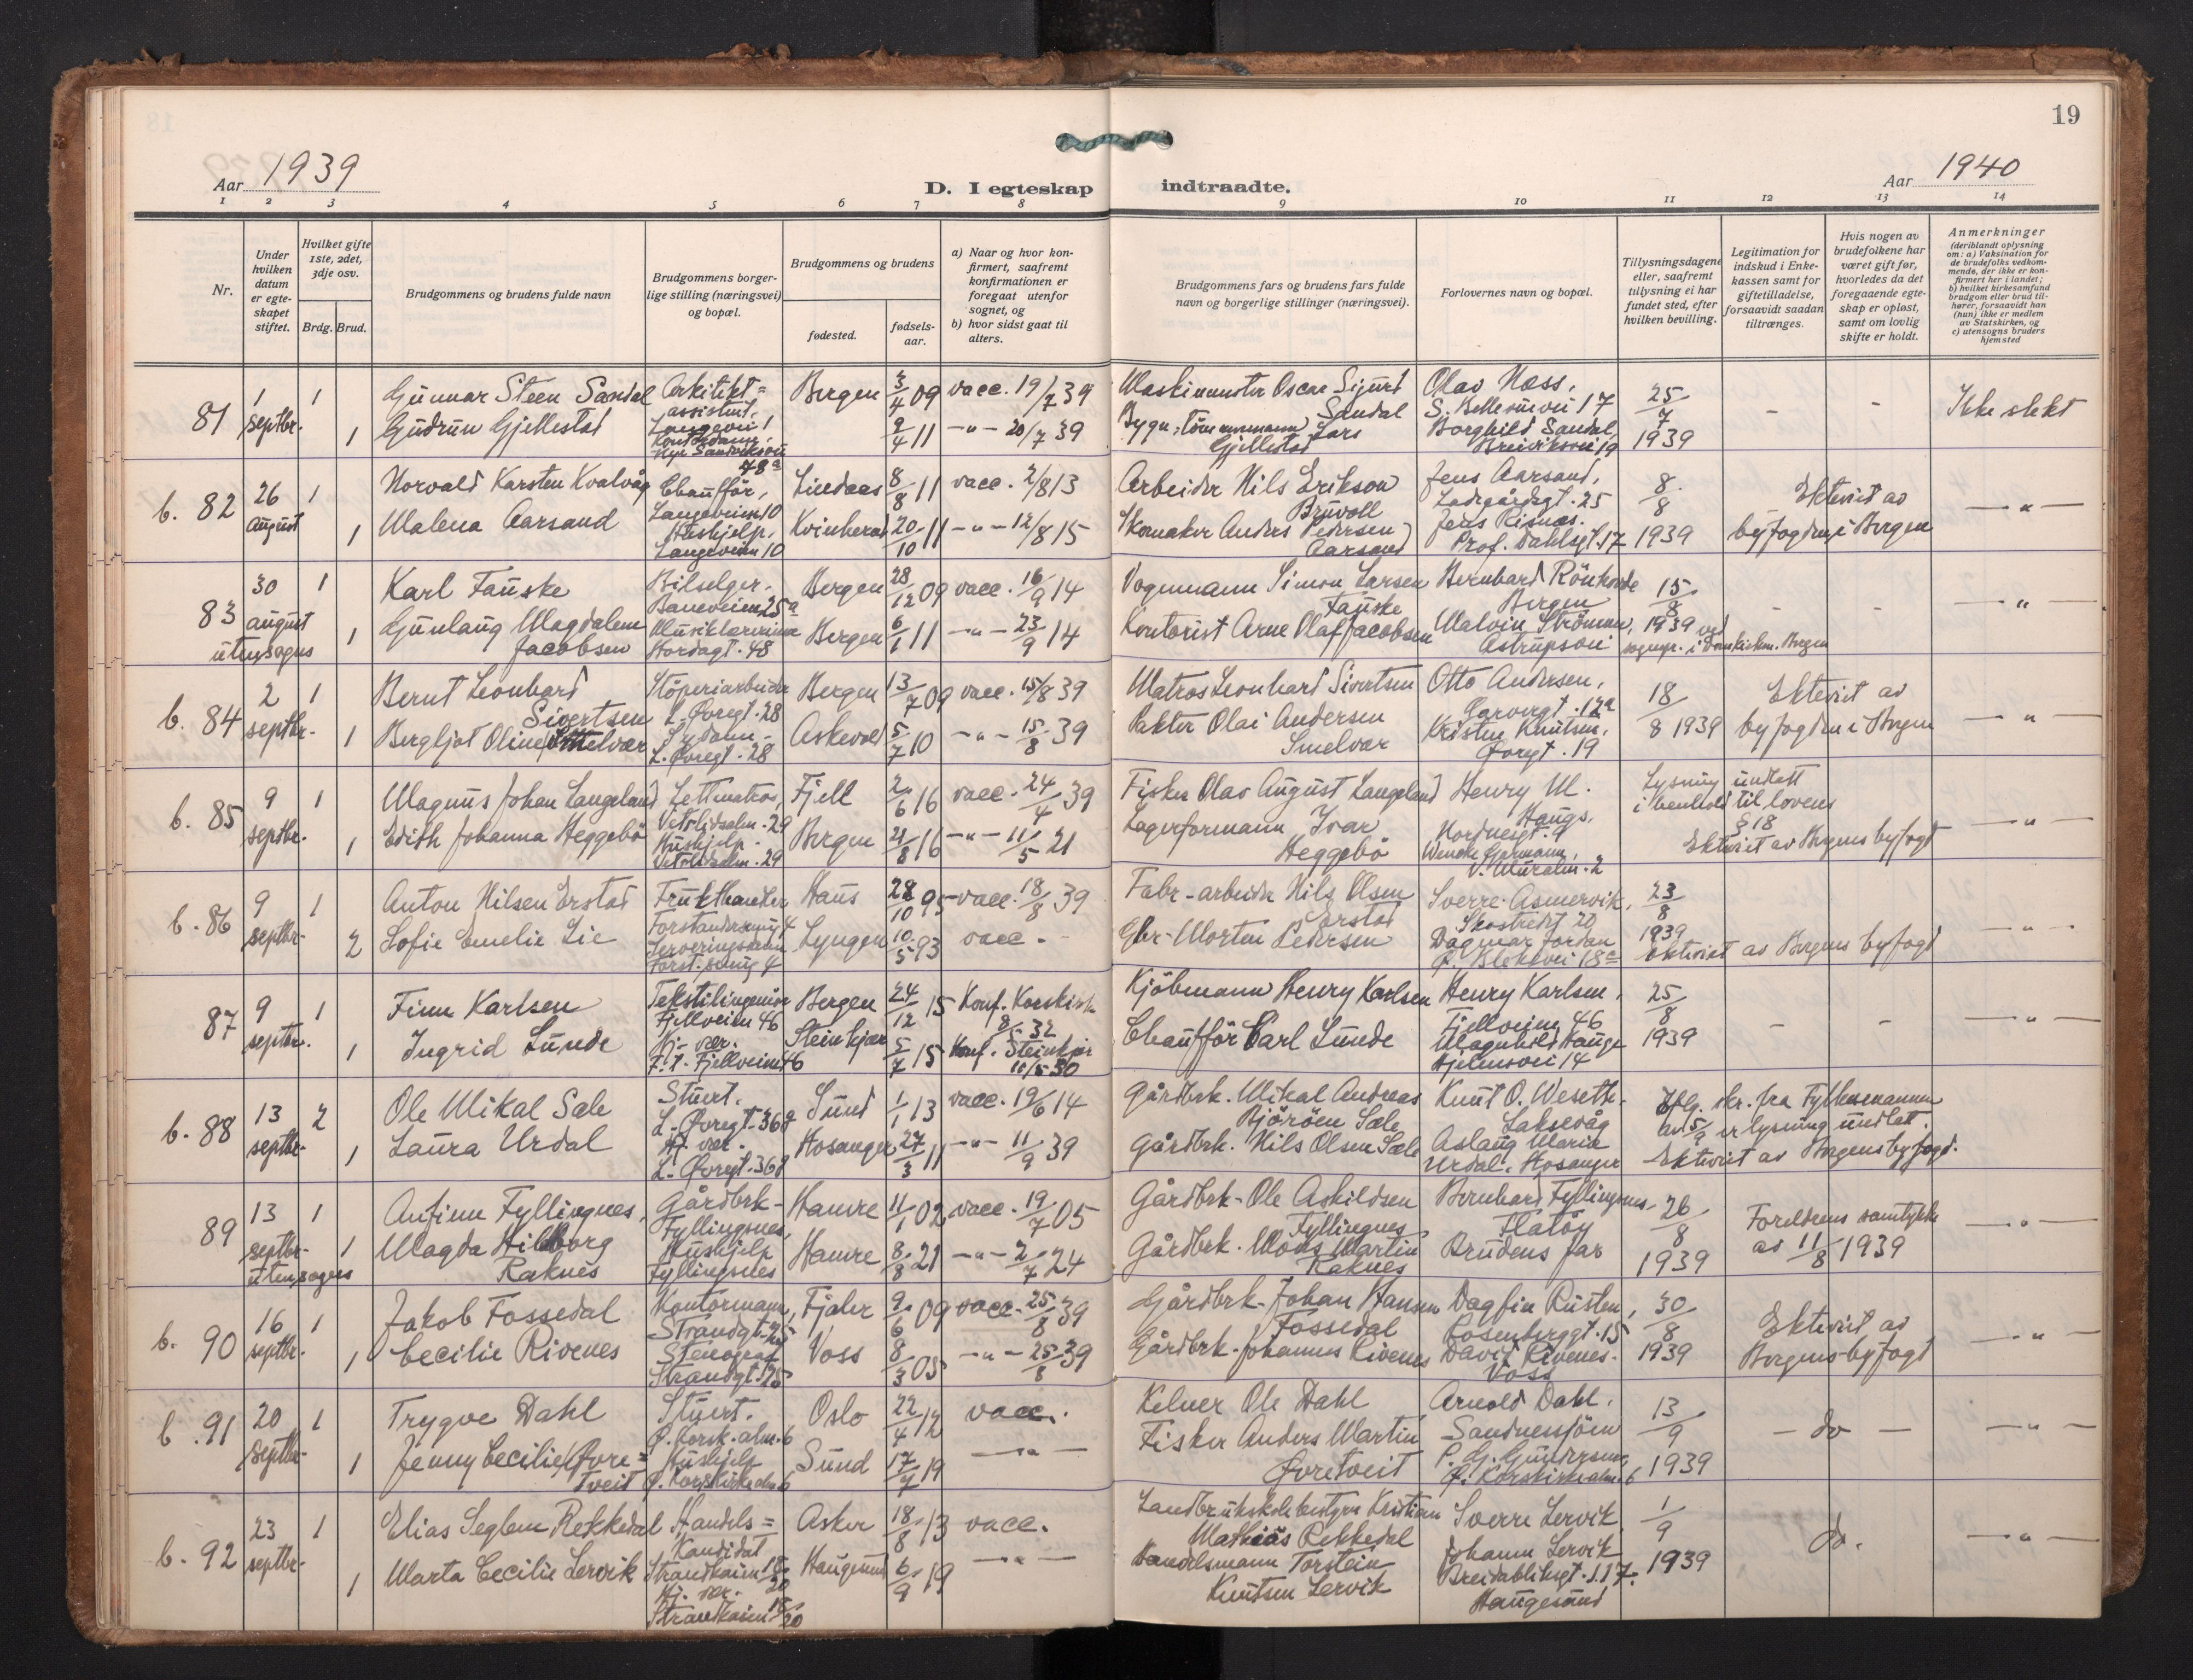 19
Aar 1939
D. I egteskap
indtraadte.
Aar 1940
1 2 3 4 5 6 7 8 9 10 11 12 13 14
Nr.
Under hvilken datum er egte-skapet stiftet.
Hvilket gifte 1ste, 2det, 3dje osv.
Brdg. Brud.
Brudgommens og brudens fulde navn
Brudgommens borger-lige stilling (næringsvei) og bopæl.
Brudgommens og brudens
fødested.
fødsels-aar.
a) Naar og hvor kon-firmert, saafremt konfirmationen er foregaat utenfor sognet, og
b) hvor sidst gaat til alters.
Brudgommens fars og brudens fars fulde navn og borgerlige stillinger (næringsvei).
Forlovernes navn og bopæl.
Tillysningsdagene eller, saafremt tillysning ei har fundet sted, efter hvilken bevilling.
Legitimation for indskud i Enke-kassen samt for giftetilladelse, forsaavidt saadan tiltrænges.
Hvis nogen av brudefolkene har været gift før, hvorledes da det foregaaende egte-skap er opløst, samt om lovlig skifte er holdt.
Anmerkninger
(deriblandt oplysning om: a) Vaksination for de brudefolks vedkom-mende, der ikke er kon-firmert her i landet; b) hvilket kirkesamfund brudgom eller brud til-hører, forsaavidt han (hun) ikke er medlem av Statskirken, og c) utensogns bruders hjemsted
81 1 septbr. 1 Gunnar Steen Sandal Arkitekt= assistent, Langevei 1 Bergen 3/4 09 vacc. 19/7 39 Maskinmester Oscar Sigurd Sandal Olav Næss, 17 25/7 1939 - - Ikke slekt
1 Gudrun Gjellestad Kontordame 48a 9/4 11 -"- 20/7 39 Bygn. tömmermann Lars Gjellestad Borghild Sandal, 19
b. 82 26 august 1 Norvald Karsten Kvalvåg Chaufför, Langeveien 10 Lindaas 8/8 11 vacc. 2/8 13 Arbeider Nils Erikson Bruvoll Jens Aarsand, Ladegårdsgt. 25 8/8 1939 Ektevist av byfogden i Bergen -"-
1 Malena Aarsand Hushjelp, Langeveien 10 Kvinherad 20/10 11 -"- 12/8 15 Skomaker Anders Pedersen Aarsand Jens Risnes. Prof. Dahlsgt. 17
83 30 august utensogns 1 Karl Fauske Bilselger. Baneveien 25a Bergen 28/12 09 vacc. 16/9 14 Vognmann Simon Larsen Fauske Bernhard Rönhovde Bergen 15/8 1939 ved sognepr. i Domkirken. Bergen - - -"-
1 Gunlaug Magdalene Jacobsen Musiklærerinne Hordagt. 48 Bergen 6/1 11 -"- 23/9 14 Kontorist Arne Olaf Jacobsen Malvin Strömmen, Astrupsvei
b. 84 2 septbr. 1 Bernt Leonhard Sivertsen Stöperiarbeider L. Øvregt. 28 Bergen 13/7 09 vacc. 15/8 39 Matros Leonhard Sivertsen Otto Andersen, 12a 18/8 1939 Ektevist av byfogden i Bergen -"-
1 Bergljot Oline Smelvær Sydame - L. Øvregt. 28 Askevoll 5/7 10 -"- 15/8 39 Olai Andersen Smelvær Kristen Knutsen, Øvregt. 19
b. 85 9 septbr. 1 Magnus Johan Langeland Lettmatros, 29 Fjell 2/6 16 vacc. 24/4 39 Fisker Olav August Langeland Henry M. Haugs, Nordnesgt. 9 Lysning undlatt i henhold til lovens § 18 -"-
1 Edith Johanna Heggebö Hushjelp. 29 Bergen 21/8 16 -"- 11/5 21 Lagerformann Ivar Heggebö Wenche Gjermann, V. Muralm. 2 Ektevist av Bergens byfogd
b. 86 9 septbr. 1 Anton Nilsen Erstad Frukthandler Forstandersmug 4 Haus 28/10 95 vacc. 18/8 39 Fabr-arbeider Nils Olsen Erstad Sverre Asmervik, Skostredet 20 23/8 1939 -"-
2 Sofie Emelie Lie Forst.smug 4 Lyngen 10/5 93 vacc. Gbr-Morten Pedersen Dagmar Jordan Ö. Blekevei 18c ektevist av Bergens byfogd
87 9 septbr. 1 Finn Karlsen Tekstilingeniör Fjellveien 46 Bergen 24/12 15 Konf. Korskirk. 8/5 32 Kjöbmann Henry Karlsen Henry Karlsen, Fjellveien 46 25/8 1939 - - -"-
1 Ingrid Lunde Hj. vær. F.t. Fjellveien 46 Steinkjær 5/7 15 Konf. Steinkjær 30 Chaufför Carl Lunde Magnhild Hauge Hjelmsvei 14
b. 88 13 septbr. 2 Ole Mikal Sæle Stuert. L. Øvregt. 36 Sund 1/1 13 vacc. 19/6 14 Gårdbrk. Mikal Andreas Björöen Sæle Knut O. Weseth. Laksevåg Iflg. skr. fra Fylkesmannen av 5/9 er lysning undlatt.
1 Laura Urdal Hj. vær. L. Øvregt. 36 Hosanger 27/3 11 -"- 11/9 39 Gårdbrk. Nils Olsen Sæle Aslaug Marie Urdal. Hosanger Ektevist av Bergens byfogd.
89 13 septbr. utensogns 1 Anfinn Fyllingnes, Gårdbrk- Fyllingsnes, Hamre 11/1 02 vacc. 19/7 05 Gårdbrk- Ole Askildsen Fyllingnes, Bernhard Fyllingnes, Flatöy 26/8 1939 Foreldrens samtykke av 11/8 1939 -"-
1 Magda Hilborg Raknes Hushjelp Fyllingsnes Hamre 8/8 21 -"- 2/7 24 Gårdbrk. Mons Martin Raknes Brudens far
b. 90 16 septbr. 1 Jakob Fossedal Kontormann, Strandgt. Fjaler 9/6 09 vacc. 25/8 39 Gårdbrk- Johan Hansen Fossedal Dagfin Rusten, Rosenberggt. 15 30/8 1939 Ektevist av Bergens byfogd -"-
1 Cecilie Rivenes Stenograf Strandgt. Voss 8/3 05 -"- 25/8 39 Gårdbrk. Johannes Rivenes David Rivenes. Voss
b. 91 20 septbr. 1 Trygve Dahl Stuert. Ö. Korsk.alm. 6 Oslo 22/4 12 vacc. Kelner Ole Dahl Arnold Dahl, Sandnessjöen 13/9 1939 - do - -"-
1 Jenny Cecilie Øvre=tveit Hushjelp Ø. Korskirkealm 6 Sund 17/7 19 -"- Fisker Anders Martin Øvretveit P. G. Gundersen, Ø. Korskirkealm. 6
b. 92 23 septbr. 1 Elias Seglem Rekkedal Handels= Kandidat Strandkaien 18/20 Asker 18/8 13 vacc. Landbrukskolebestyrer Kristian Mathias Rekkedal Sverre Lervik 1/9 1939 do. -"-
1 Marta Cecilie Lervik Hj. vær. Strandkaien 18/20 Haugesund 6/9 19 -"- Handelsmann Torstein Knutsen Lervik Johann Lervik Breidabliksgt. 117. Haugesund